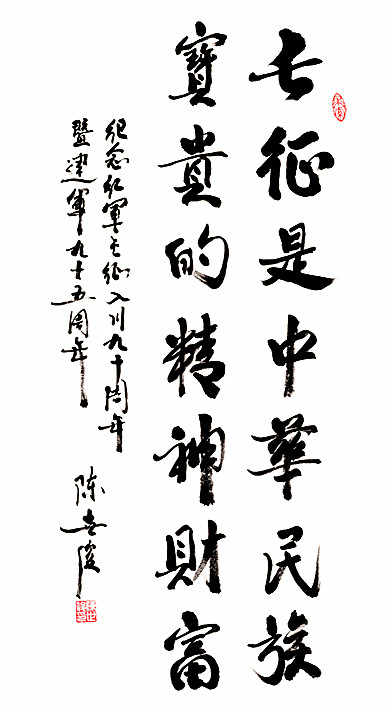 长征是中華民族
寶貴的精神財富
纪念红軍长征入川九十周年
暨建軍九十五周年
陈世俊